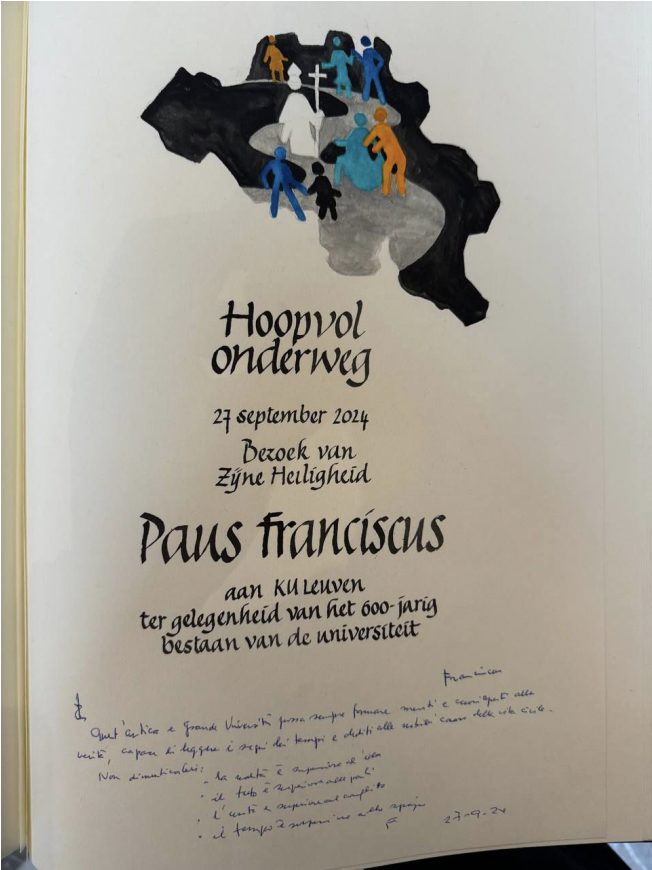 Hoopvol
onderweg
27 september 2024
Bezoek van
Zijne Heiligheid
Paus Franciscus
aan KU Leuven
ter gelegenheid van het 600-jarig
bestaan van de universiteit
Franciscus
Quest'antica e Grande Università possa sempre formare menti e cuori aperti alla
verità, capaci di leggere i segni dei tempi e dediti alle
della vita civile.
Non dimenticatevi:
· la realtà è superiore all'idea
· il tutto è superiore alle parti
· L'unità è superiore al conflitto
· il tempo è superiore allo spazio
27-9-24